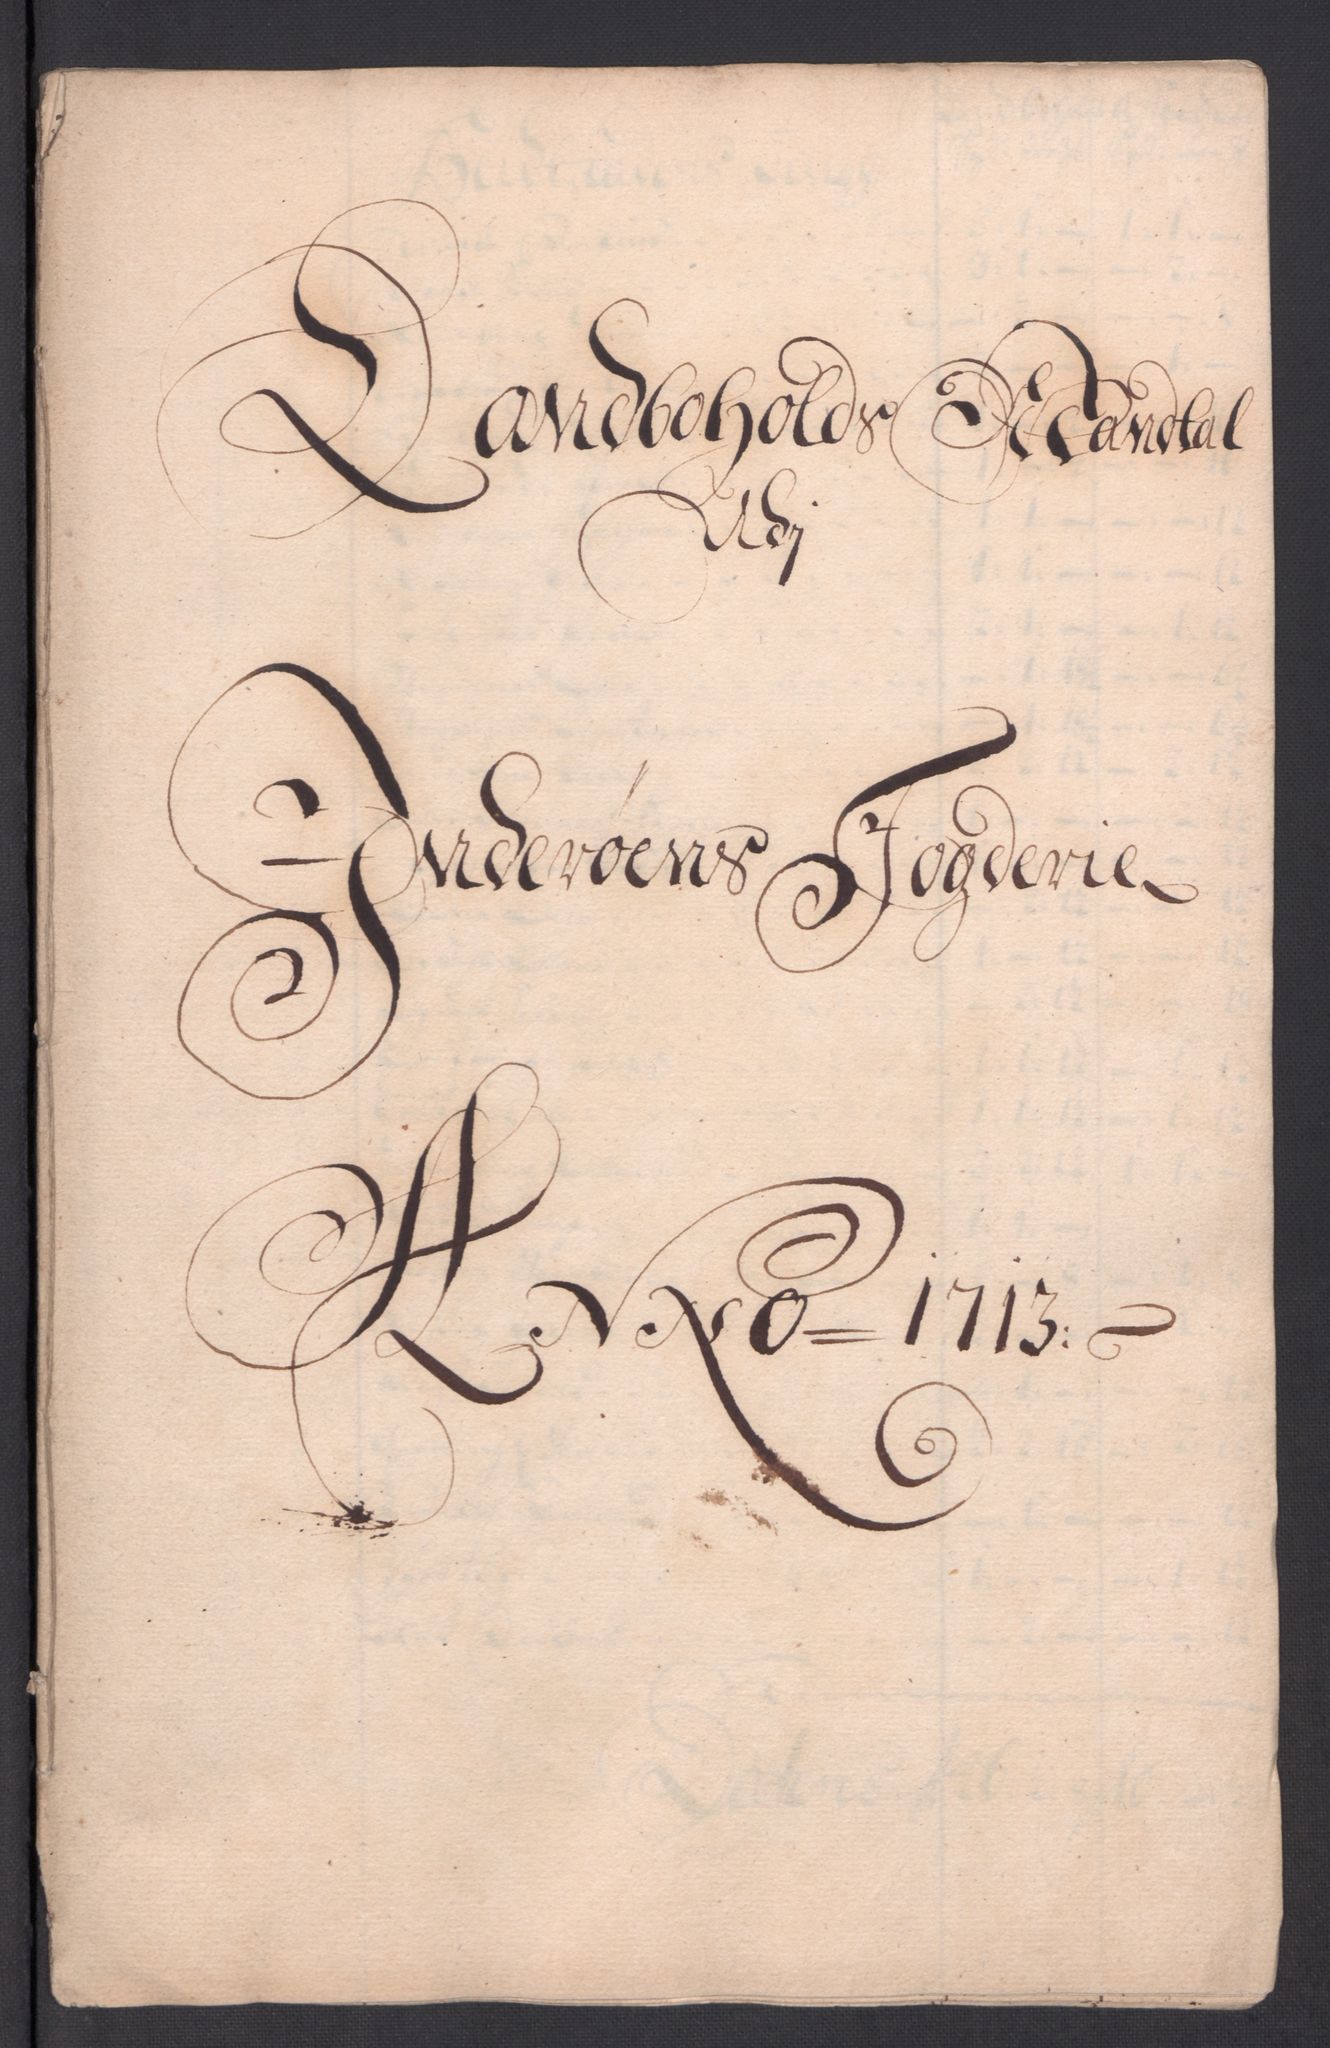 Landboholds Mandtal
Udj
Inderøens Fogderie
ANNO = 1713: